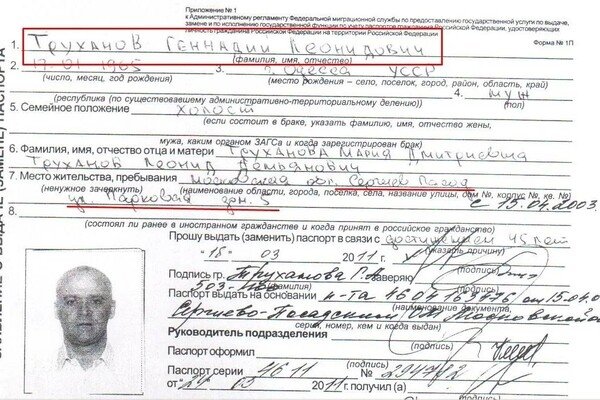 Приложение № 1
к Административному регламенту Федеральной миграционной службы по предоставлению государственной услуги по выдаче,
замене и по исполнению государственной функции по учету паспортов гражданина Российской Федерации, удостоверяющих
личность гражданина Российской Федерации на территории Российской Федерации
Форма № 1П
1. Труханов Геннадий Леонидович
(фамилия, имя, отчество)
2. 17.01.1965 3. г. Одесса УССР
(число, месяц, год рождения) (место рождения – село, поселок, город, район, область, край)
4. муж
(республика (по существовавшему административно-территориальному делению)) (пол)
5. Семейное положение холост
(если состоит в браке, указать фамилию, имя, отчество жены,
мужа, каким органом ЗАГСа и когда зарегистрирован брак)
6. Фамилия, имя, отчество отца и матери Труханова Мария Дмитриевна
Труханов Леонид Демьянович
7. Место жительства, пребывания Московская обл. Сергиев Посад
(ненужное зачеркнуть) (наименование области, города, поселка, села, название улицы, дом №, корпус №, кв. №)
ул Парковая дом. 5 с 15.04.2003
8.
(состоял ли ранее в иностранном гражданстве и когда принят в российское гражданство)
Прошу выдать (заменить) паспорт в связи с достижением 45 лет
(указать причину)
"18" 03 2011 г.
(подпись)
Подпись гр. заверяю
503-
(подпись)
Паспорт выдать на основании п-та
Сергиево-Посадским Московской
серия, номер, кем и когда выдан)
Руководитель подразделения
(подпись)
Паспорт оформил
(подпись)
Паспорт серии 46 11 №
от "24" 03 2011 г. получил (а)
(подпись)